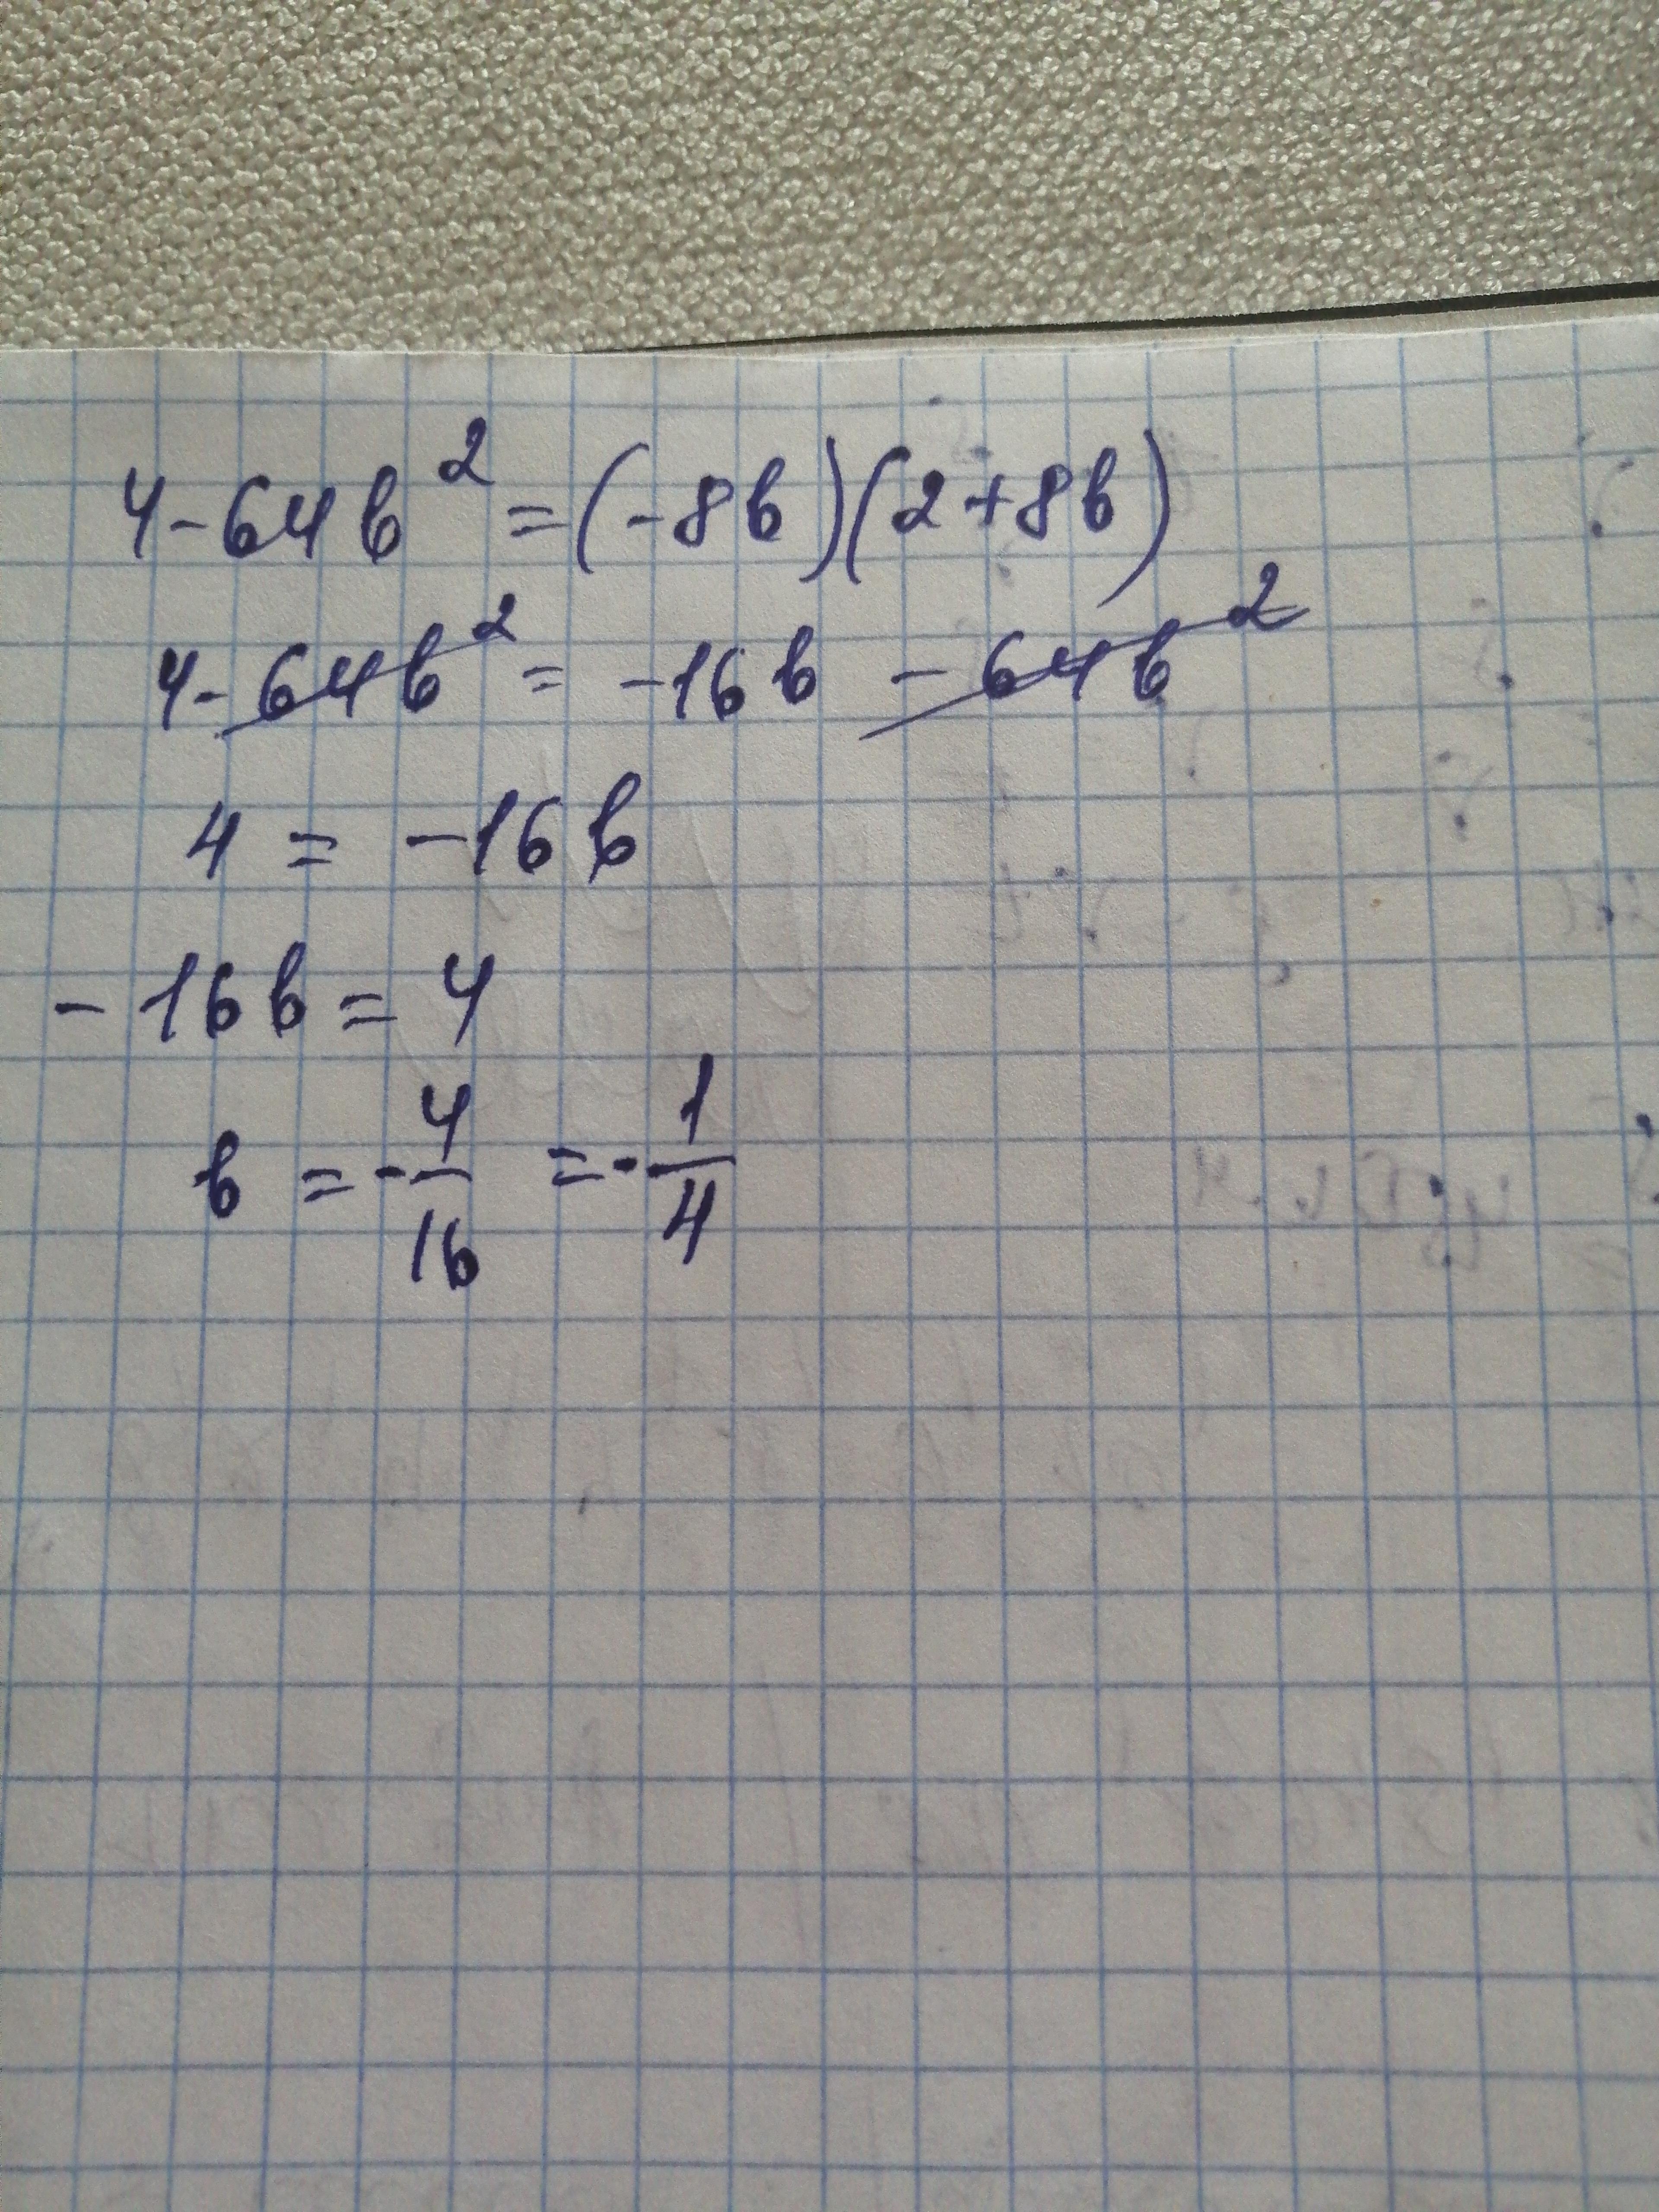 4-64b²=(-8b)(2+8b)
4-64b² = -16b - 64b²
4 = -16b
-16b = 4
b = -4/16 = -1/4